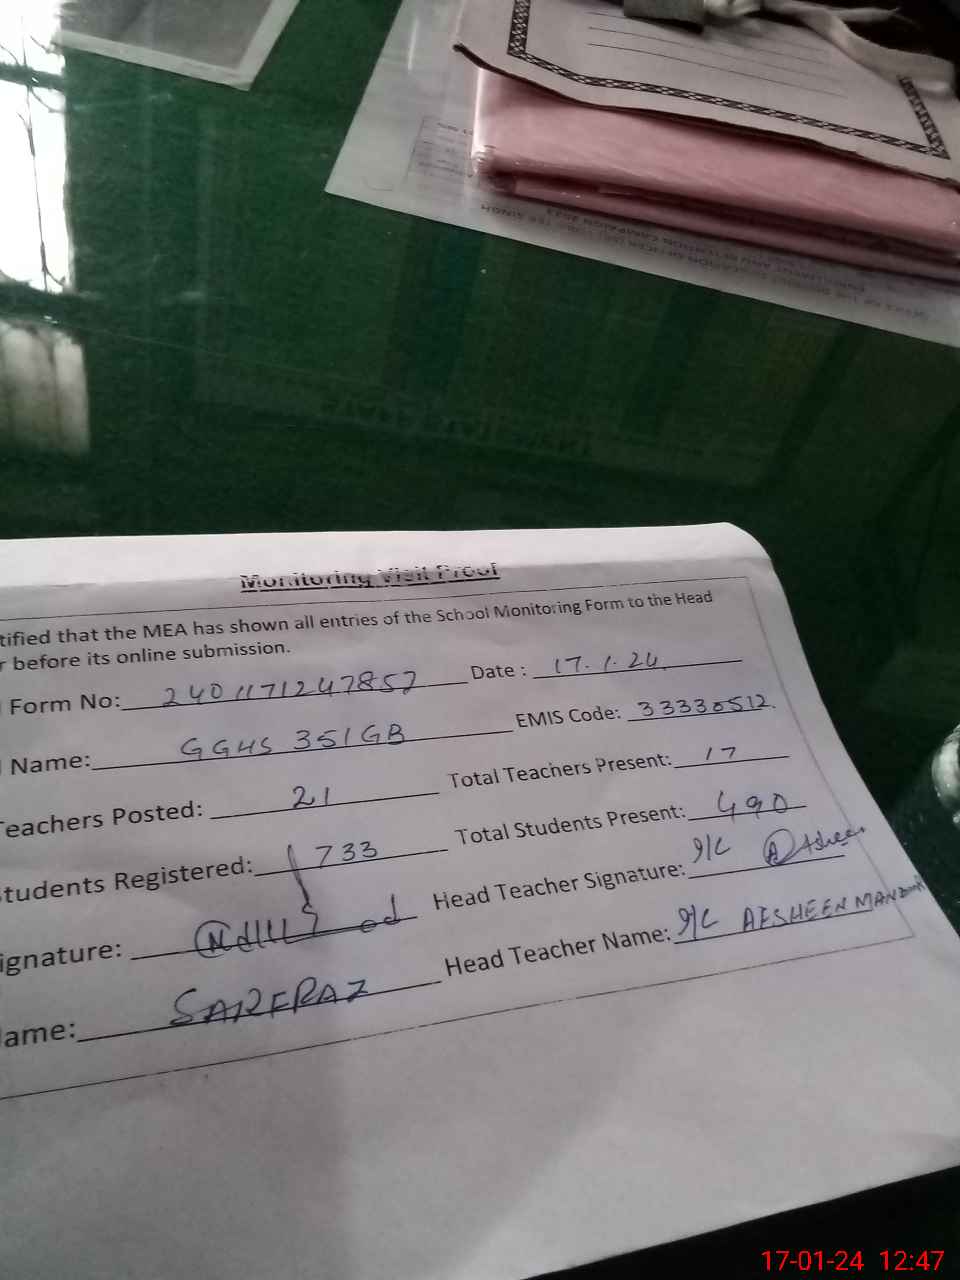 Monitoring Visit Proof
tified that the MEA has shown all entries of the School Monitoring Form to the Head
r before its online submission.
Form No: 2401171247857 Date : 17.1.24
Name: GGHS 351GB EMIS Code: 33330512
Teachers Posted: 21 Total Teachers Present: 17
tudents Registered: 733 Total Students Present: 490
ignature: Head Teacher Signature: I/C Afsheen
ame: SARFRAZ Head Teacher Name: I/C AFSHEEN MANZOOR
17-01-24 12:47